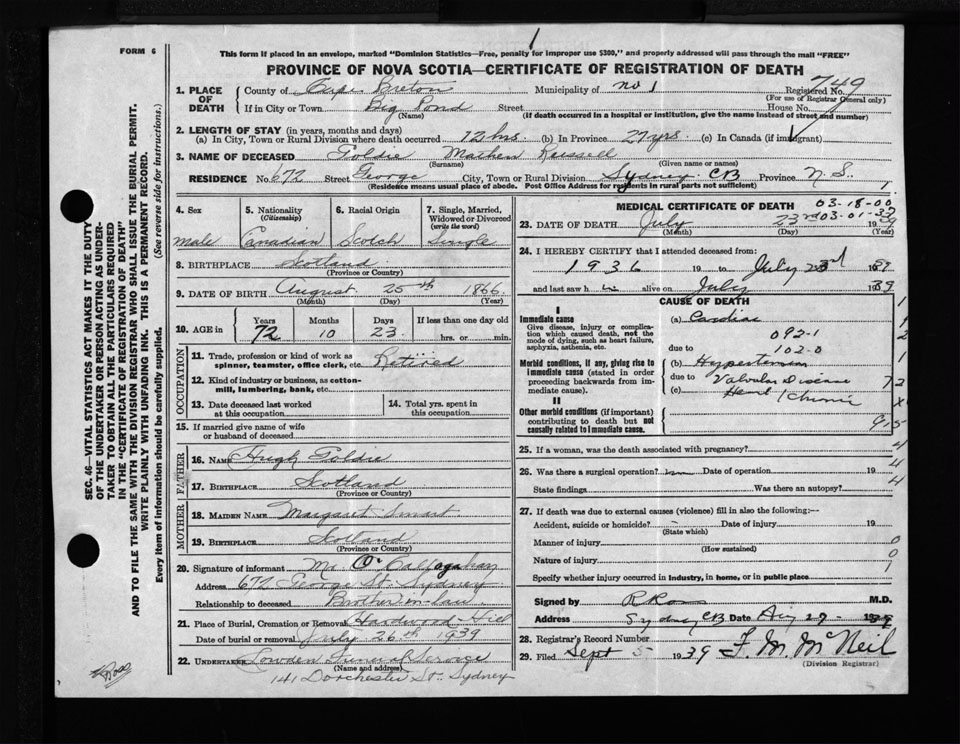 FORM 6
This form if placed in an envelope, marked "Dominion Statistics—Free, penalty for improper use $300," and properly addressed will pass through the mail "FREE"
PROVINCE OF NOVA SCOTIA—CERTIFICATE OF REGISTRATION OF DEATH
749
1. PLACE OF DEATH
County of Cape Breton Municipality of No 1 Registered No.
(For use of Registrar General only)
If in City or Town Big Pond Street House No.
(Name) (If death occurred in a hospital or institution, give the name instead of street and number)
2. LENGTH OF STAY (in years, months and days)
(a) In City, Town or Rural Division where death occurred 12 hrs. (b) In Province 27 yrs. (c) In Canada (if immigrant)
3. NAME OF DECEASED Goldie Russell
(Surname) (Given name or names)
RESIDENCE No. 672 Street George City, Town or Rural Division Sydney CB Province N.S.
(Residence means usual place of abode. Post Office Address for residents in rural parts not sufficient)
4. Sex
male
5. Nationality (Citizenship)
Canadian
6. Racial Origin
Scotch
7. Single, Married, Widowed or Divorced (write the word)
Single
8. BIRTHPLACE Scotland
(Province or Country)
9. DATE OF BIRTH August 25th 1866
(Month) (Day) (Year)
10. AGE in Years Months Days If less than one day old
72 10 23 hrs. or min.
OCCUPATION
11. Trade, profession or kind of work as spinner, teamster, office clerk, etc. Retired
12. Kind of industry or business, as cotton-mill, lumbering, bank, etc.
13. Date deceased last worked at this occupation
14. Total yrs. spent in this occupation
15. If married give name of wife or husband of deceased
FATHER
16. NAME Hugh Goldie
17. BIRTHPLACE Scotland
(Province or Country)
MOTHER
18. MAIDEN NAME Margaret Smart
19. BIRTHPLACE Scotland
(Province or Country)
20. Signature of informant Mr. O'Callaghan
Address 672 George St. Sydney
Relationship to deceased Brother in law
21. Place of Burial, Cremation or Removal Hardwood Hill
Date of burial or removal July 26th 1939
22. UNDERTAKER Lowden Funeral Service
(Name and address)
141 Dorchester St., Sydney
MEDICAL CERTIFICATE OF DEATH
03-18-00
23. DATE OF DEATH July 23rd 19
(Month) (Day) (Year)
24. I HEREBY CERTIFY that I attended deceased from:
1936 19 to July 23rd 1939
and last saw h alive on July 1939
CAUSE OF DEATH
I
Immediate cause
Give disease, injury or complication which caused death, not the mode of dying, such as heart failure, asphyxia, asthenia, etc.
(a) Cardiac
092-1
due to 102-0
Morbid conditions, if any, giving rise to immediate cause (stated in order proceeding backwards from immediate cause).
(b) Hypertension
due to Valvular Disease
(c) Heart Chronic
II
Other morbid conditions (if important) contributing to death but not causally related to immediate cause.
25. If a woman, was the death associated with pregnancy?
26. Was there a surgical operation? Date of operation 19
State findings Was there an autopsy?
27. If death was due to external causes (violence) fill in also the following:—
Accident, suicide or homicide? Date of injury 19
(State which)
Manner of injury
(How sustained)
Nature of injury
Specify whether injury occurred in industry, in home, or in public place
Signed by R Ross M.D.
Address Sydney CB Date Aug 29 1939
28. Registrar's Record Number
29. Filed Sept 5 1939 F. M. McNeil
(Division Registrar)
SEC. 46—VITAL STATISTICS ACT MAKES IT THE DUTY OF THE UNDERTAKER OR PERSON ACTING AS UNDERTAKER TO OBTAIN ALL THE PARTICULARS REQUIRED IN THE "CERTIFICATE OF REGISTRATION OF DEATH" AND TO FILE THE SAME WITH THE DIVISION REGISTRAR WHO SHALL ISSUE THE BURIAL PERMIT.
WRITE PLAINLY WITH UNFADING INK. THIS IS A PERMANENT RECORD.
Every item of information should be carefully supplied. (See reverse side for instructions.)